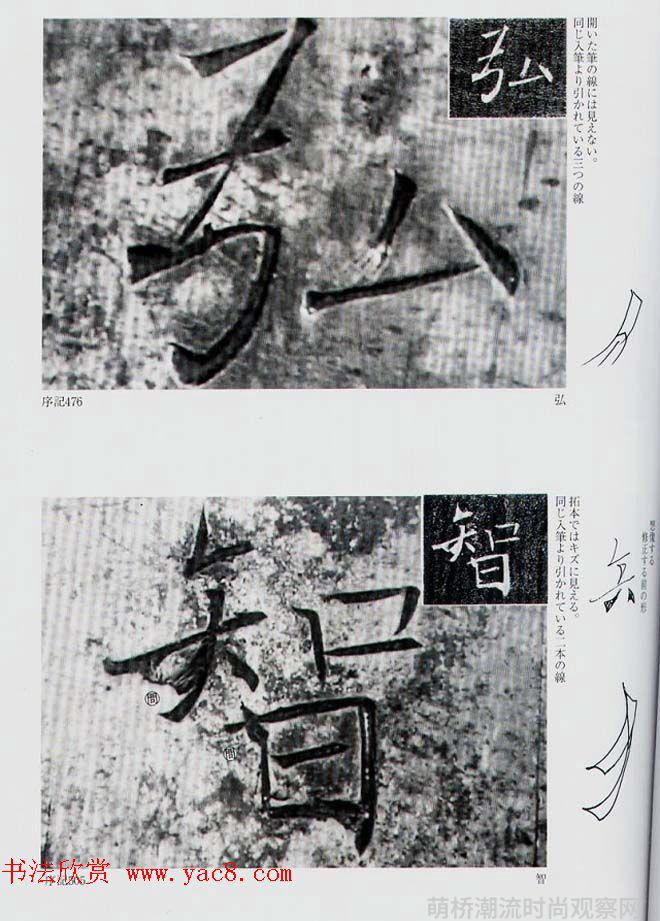 弘
弘
開いた筆の線には見えない。
同じ入筆より引かれている三つの線
序記476
弘
智
智
拓本ではキズに見える。
同じ入筆より引かれている二本の線
想像する
修正する前の形
序記505
智
书法欣赏 www.yac8.com
萌桥潮流时尚观察网